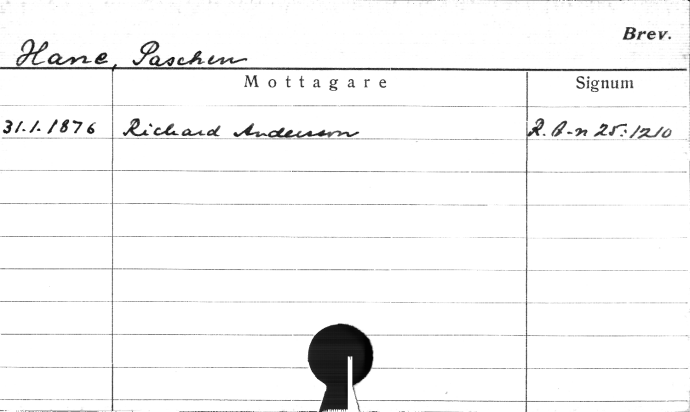 Brev.
Hane, Paschen
Mottagare Signum
31.1.1876 Richard Andersson R. A-n 25:1210